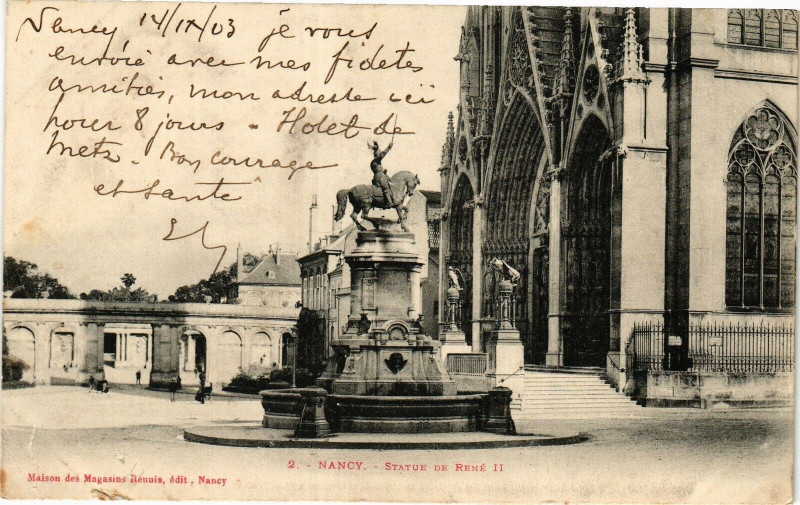 Nancy 14/IX/03 je vous
envoie avec mes fidèles
amitiés, mon adresse ici
pour 8 jours - Hotel de
Metz. Bon courage
et santé
2. - NANCY. - STATUE DE RENÉ II
Maison des Magasins Réunis, édit. Nancy